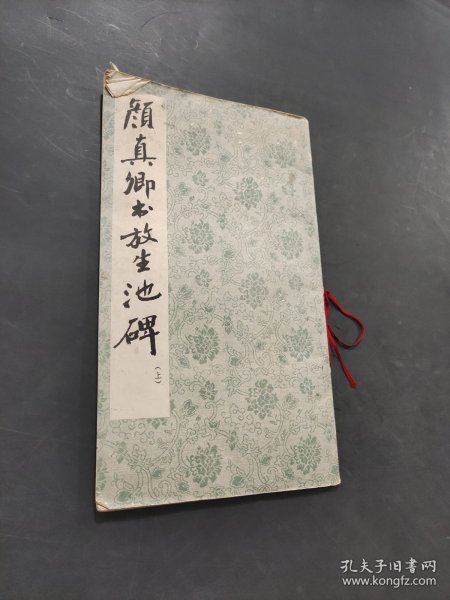 顔真卿书放生池碑
（上）
孔夫子旧书网
www.kongfz.com